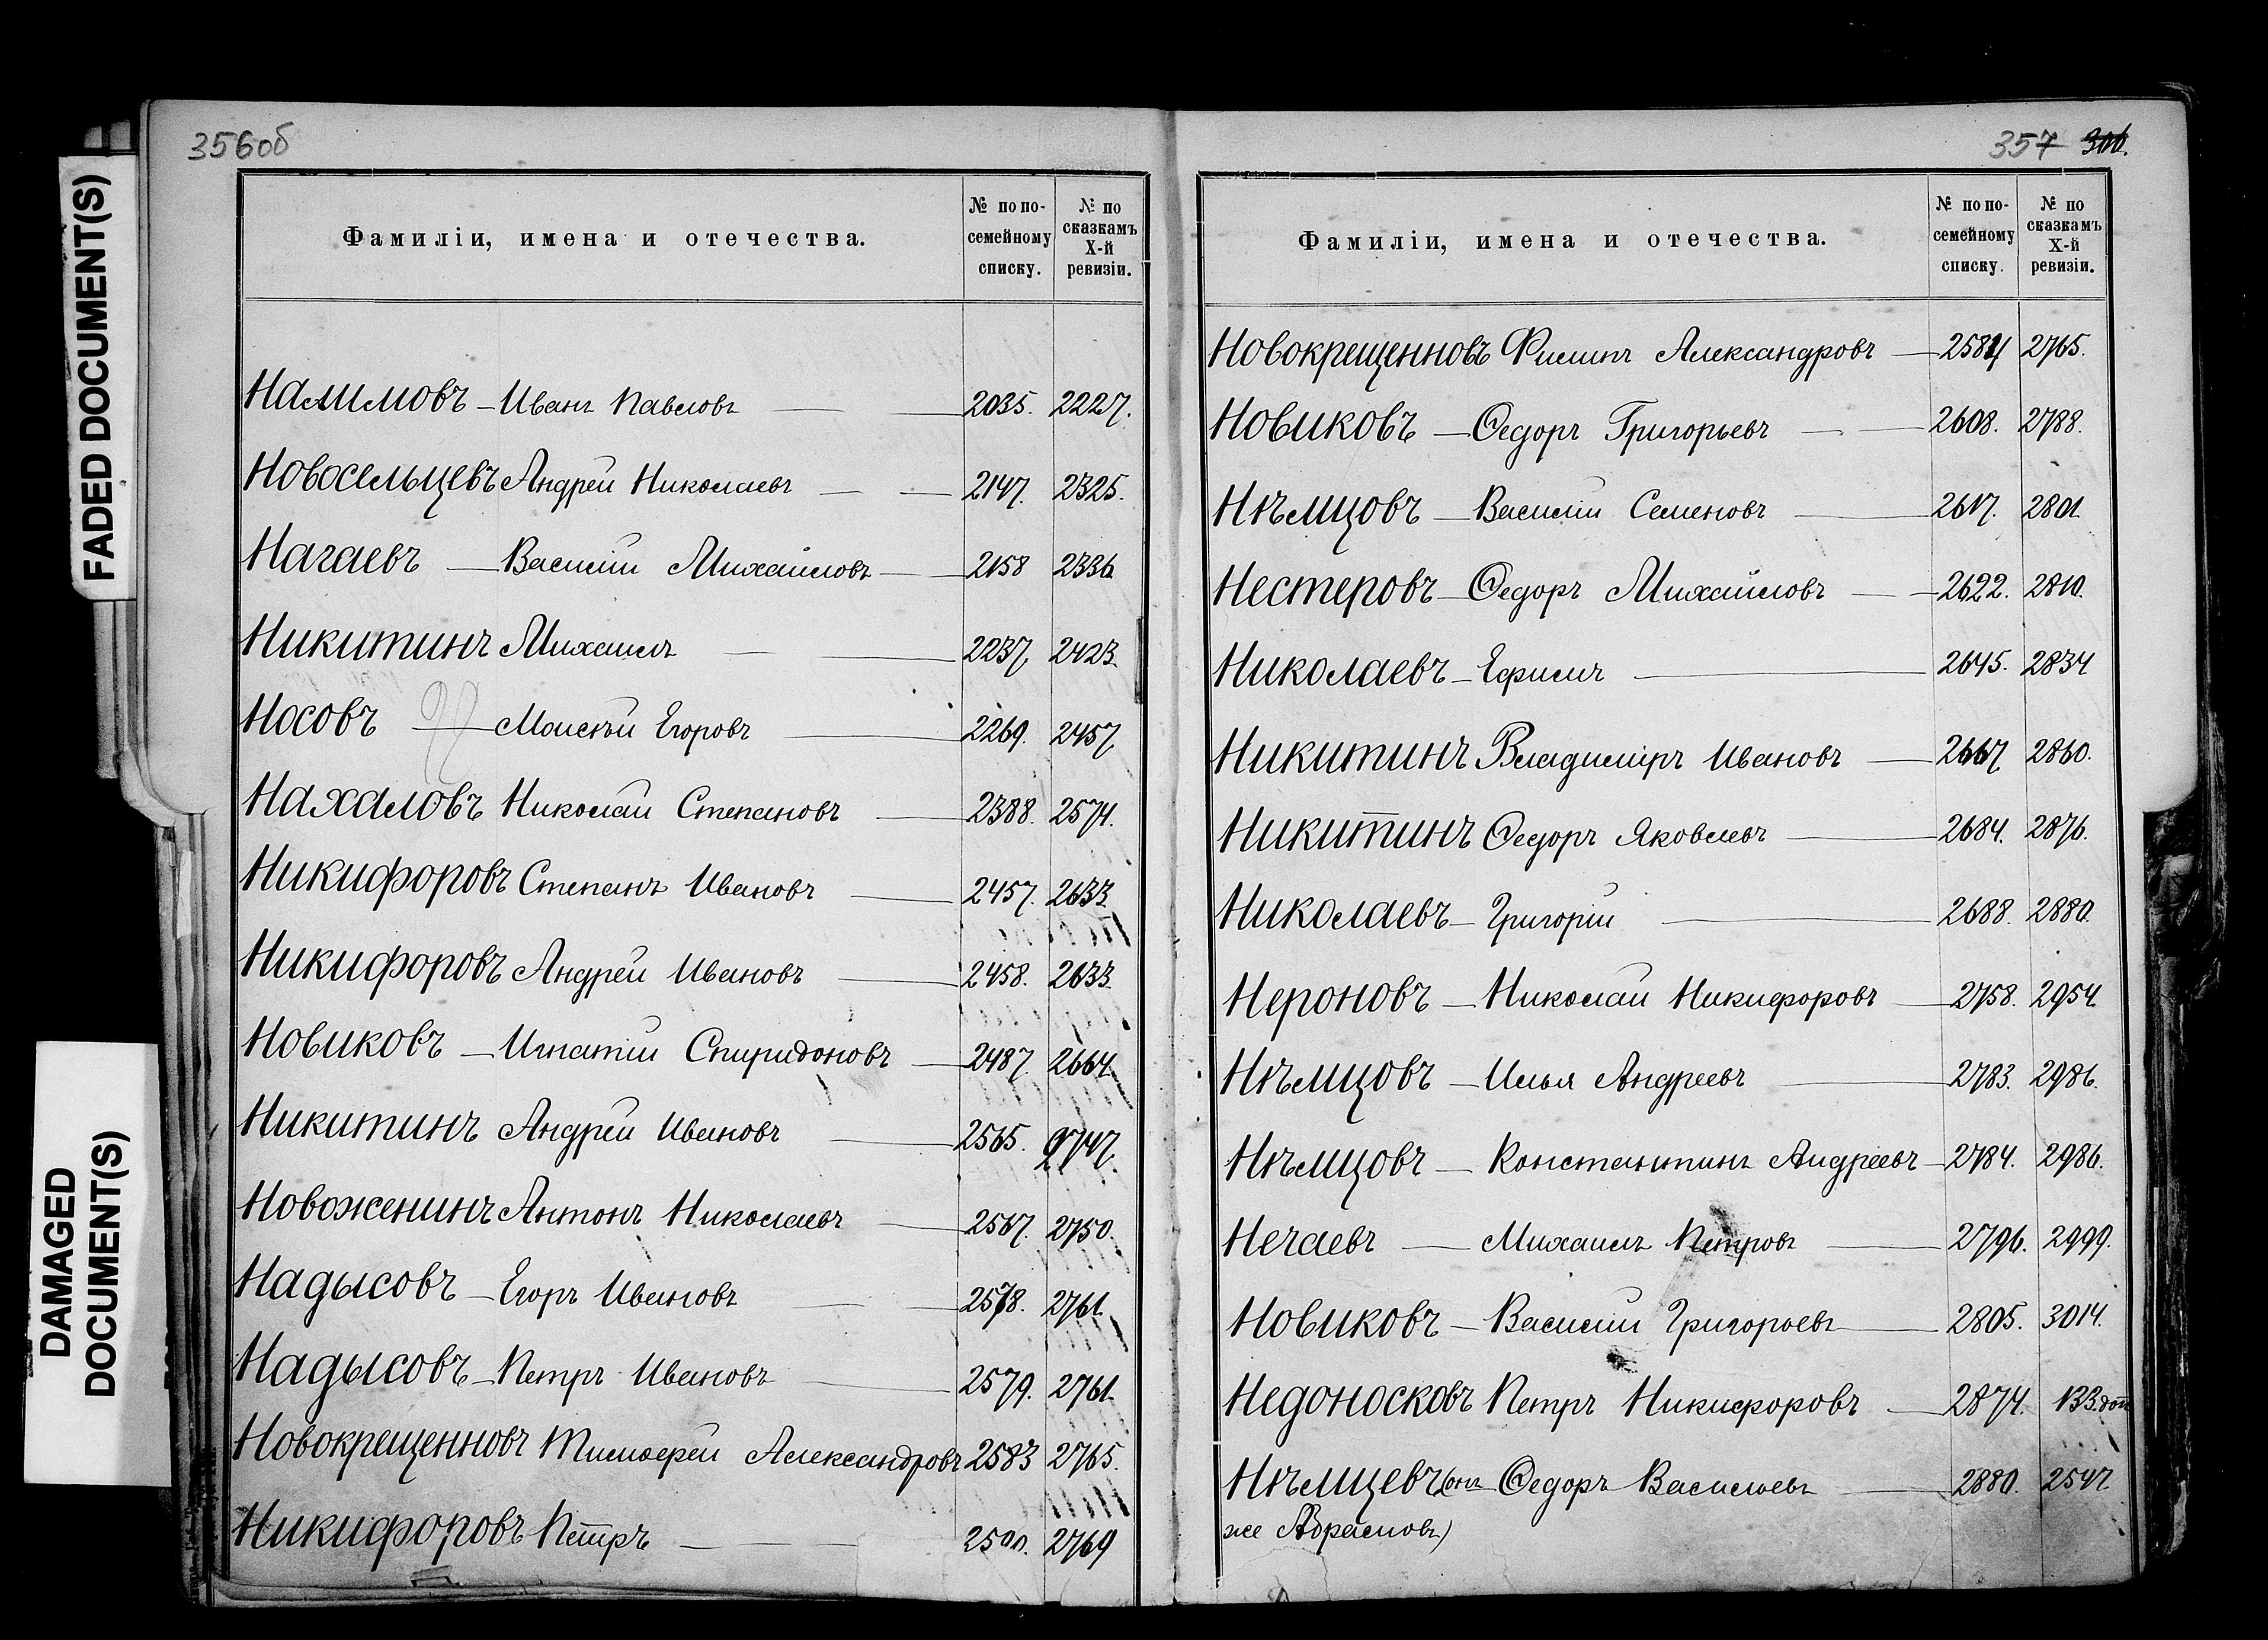 FADED DOCUMENT(S)
DAMAGED
DOCUMENT(S)
356об
Фамиліи, имена и отечества.
№ по по-
семейному
списку.
№ по
сказкамъ
X-й
ревизіи.
Налимовъ - Иванъ Павловъ 2035. 2227.
Новосельцевъ Андрей Николаевъ 2147. 2325.
Нагаевъ - Василій Михайловъ 2158 2336
Никитинъ Михаилъ 2237. 2423.
Носовъ - Моисѣй Егоровъ 2269. 2457
Нахаловъ Николай Степановъ 2388. 2574.
Никифоровъ Степанъ Ивановъ 2457. 2633.
Никифоровъ Андрей Ивановъ 2458. 2633.
Новиковъ - Игнатій Спиридоновъ 2487. 2664.
Никитинъ Андрей Ивановъ 2565. 2747.
Новоженинъ Антонъ Николаевъ 2567. 2750.
Надысовъ - Егоръ Ивановъ 2578. 2761.
Надысовъ - Петръ Ивановъ 2579. 2761.
Новокрещенновъ Тимофей Александровъ 2583 2765.
Никифоровъ Петръ 2769
357 306.
Фамиліи, имена и отечества.
№ по по-
семейному
списку.
№ по
сказкамъ
X-й
ревизіи.
Новокрещенновъ Филипъ Александровъ 2584 2765.
Новиковъ - Ѳедоръ Григорьевъ 2608. 2788.
Нѣмцовъ - Василій Семеновъ 2617. 2801.
Нестеровъ - Ѳедоръ Михайловъ 2622. 2810.
Николаевъ - Ефимъ 2645. 2834
Никитинъ Владиміръ Ивановъ 2667 2860.
Никитинъ Ѳедоръ Яковлевъ 2684. 2876.
Николаевъ - Григорій 2688. 2880.
Нероновъ - Николай Никифоровъ 2758. 2954.
Нѣмцовъ - Илья Андреевъ 2783. 2986.
Нѣмцовъ - Константинъ Андреевъ 2784. 2986.
Нечаевъ - Михаилъ Петровъ 2796. 2999.
Новиковъ - Василій Григорьевъ 2805. 3014.
Недоносковъ Петръ Никифоровъ 2874. 133.доп
Нѣмцевъ (онъ Ѳедоръ Васильевъ 2880. 2547
же Абрамовъ)